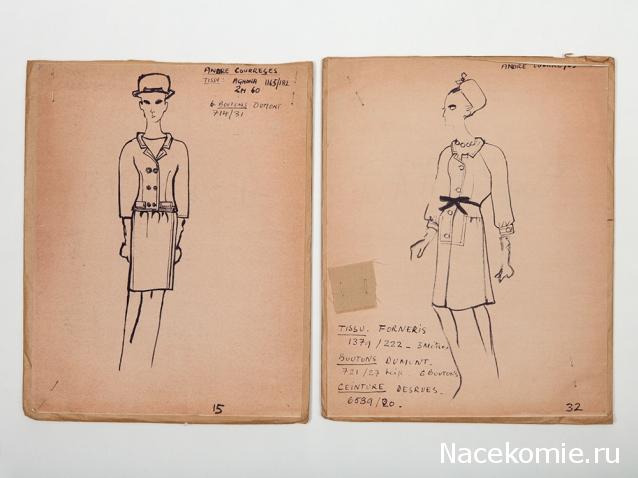 ANDRE COURREGES
TISSU: AGNONA 1165/182
2M.60
6 BOUTONS DUMONT
714/31
15
ANDRE COURREGES
TISSU. FORNERIS
1379/222 _ 3 Mètres
BOUTONS DUMONT.
721/27 6 BOUTONS
CEINTURE DESRUES.
6589/20.
32
Nacekomie.ru